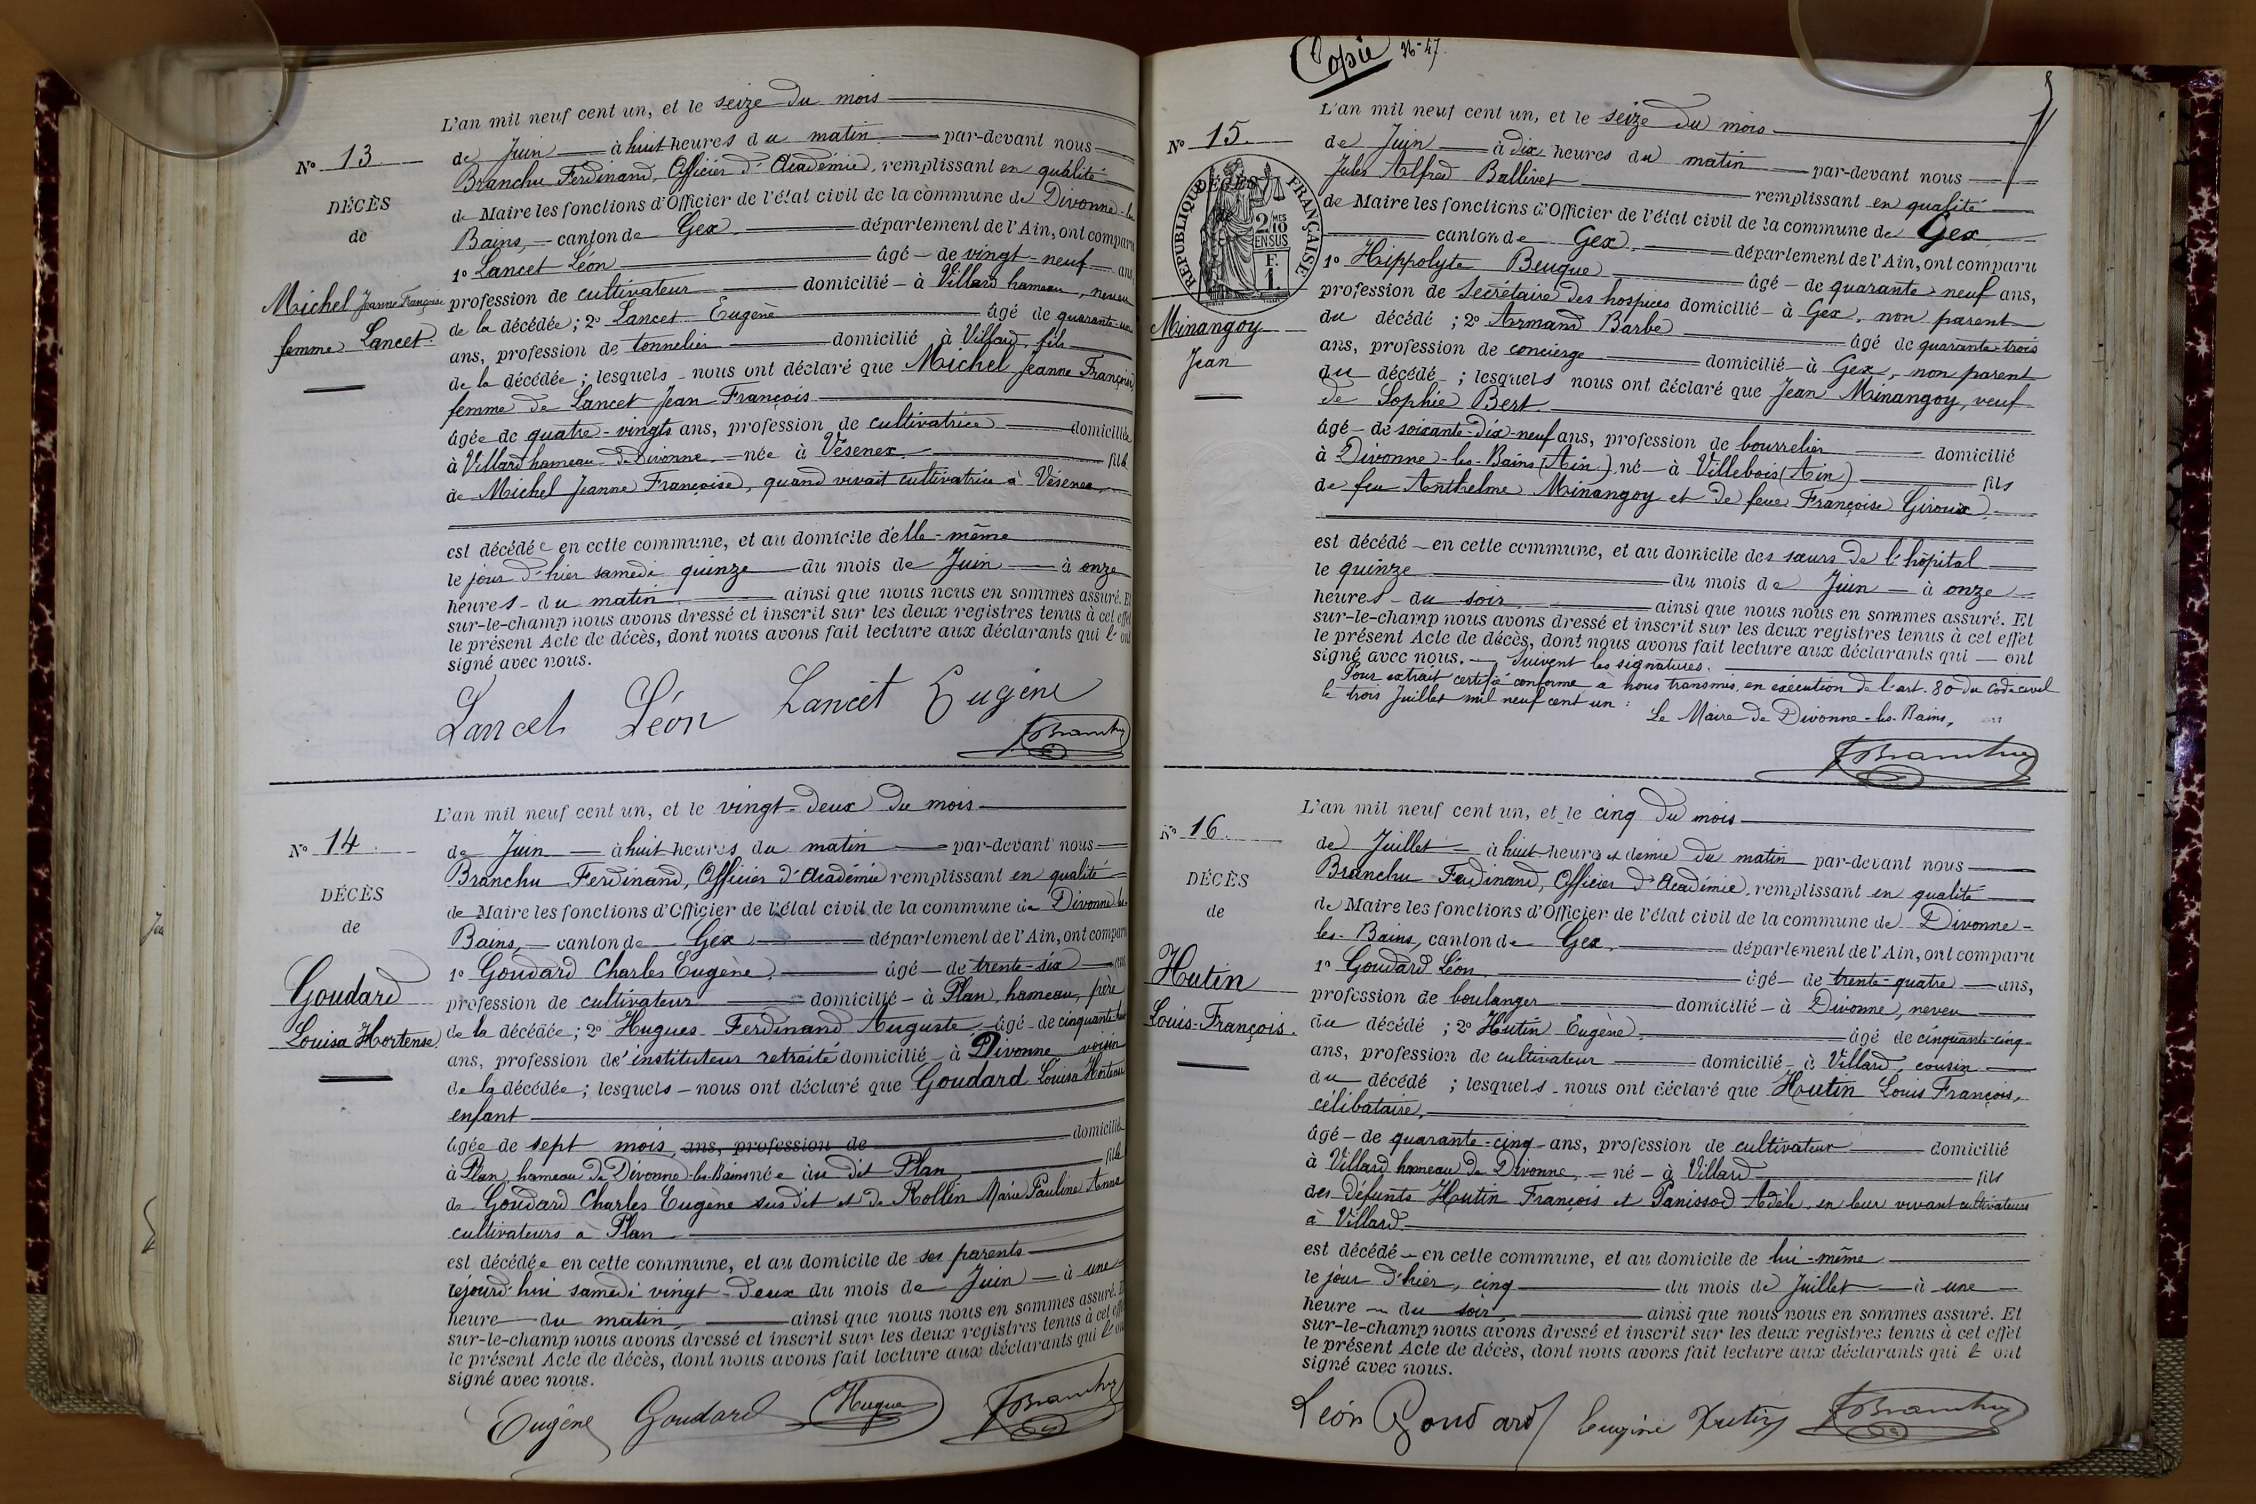 L'an mil neuf cent un, et le seize du mois
N° 13
de Juin à huit heures du matin par-devant nous
Branchu Ferdinand, Officier d'Académie, remplissant en qualité
DÉCÈS
de Maire les fonctions d'Officier de l'état civil de la commune de Divonne-les
de
Bains, canton de Gex département de l'Ain, ont comparu
1° Lancet Léon âgé de vingt-neuf ans
Michel Jeanne Françoise
profession de cultivateur domicilié à Villard hameau, neveu
femme Lancet
de la décédée ; 2° Lancet Eugène âgé de quarante-un
ans, profession de tonnelier domicilié à Villard, fils
de la décédée ; lesquels nous ont déclaré que Michel Jeanne Françoise
femme de Lancet Jean François
âgée de quatre-vingts ans, profession de cultivatrice domiciliée
à Villard hameau de Divonne née à Vésenex fille
de Michel Jeanne Françoise, quand vivait cultivatrice à Vésenex,
est décédée en cette commune, et au domicile d'elle-même
le jour d'hier samedi quinze du mois de Juin à onze
heures du matin ainsi que nous nous en sommes assuré. Et
sur-le-champ nous avons dressé et inscrit sur les deux registres tenus à cet effet
le présent Acte de décès, dont nous avons fait lecture aux déclarants qui l' ont
signé avec nous.
Lancet Léon Lancet Eugène
FBranchu
L'an mil neuf cent un, et le vingt-deux du mois
N° 14
de Juin à huit heures du matin par-devant nous
Branchu Ferdinand, Officier d'Académie remplissant en qualité
DÉCÈS
de Maire les fonctions d'Officier de l'état civil de la commune de Divonne-les
de
Bains, canton de Gex département de l'Ain, ont comparu
1° Goudard Charles Eugène, âgé de trente-six ans
Goudard
profession de cultivateur domicilié à Plan, hameau, père
Louisa Hortense
de la décédée ; 2° Hugues Ferdinand Auguste âgé de cinquante
ans, profession d'instituteur retraité domicilié à Divonne voisin
de la décédée ; lesquels nous ont déclaré que Goudard Louisa Hortense
enfant
âgée de sept mois, ans, profession de domiciliée
à Plan, hameau de Divonne-les-Bains née au dit Plan fille
de Goudard Charles Eugène susdit et de Rollin Marie Pauline Anna
cultivateurs à Plan
est décédée en cette commune, et au domicile de ses parents
cejourd'hui samedi vingt-deux du mois de Juin à une
heure du matin, ainsi que nous nous en sommes assuré. Et
sur-le-champ nous avons dressé et inscrit sur les deux registres tenus à cet effet
le présent Acte de décès, dont nous avons fait lecture aux déclarants qui l' ont
signé avec nous.
Eugène Goudard Hugues FBranchu
Copie N° 47
L'an mil neuf cent un, et le seize du mois
N° 15
de Juin à dix heures du matin par-devant nous
Jules Alfred Ballivet remplissant en qualité
DÉCÈS
RÉPUBLIQUE FRANÇAISE
2/10 MES EN SUS
F. 1.
de Maire les fonctions d'Officier de l'état civil de la commune de Gex
canton de Gex département de l'Ain, ont comparu
1° Hippolyte Beuque âgé de quarante-neuf ans,
profession de Secrétaire des hospices domicilié à Gex, non parent
Minangoy
du décédé ; 2° Armand Barbe âgé de quarante-trois
Jean
ans, profession de concierge domicilié à Gex, non parent
du décédé ; lesquels nous ont déclaré que Jean Minangoy, veuf
de Sophie Bert
âgé de soixante-dix-neuf ans, profession de bourrelier domicilié
à Divonne-les-Bains (Ain), né à Villebois (Ain) fils
de feu Anthelme Minangoy et de feue Françoise Giroux
est décédé en cette commune, et au domicile des sœurs de l'hôpital
le quinze du mois de Juin à onze
heures du soir ainsi que nous nous en sommes assuré. Et
sur-le-champ nous avons dressé et inscrit sur les deux registres tenus à cet effet
le présent Acte de décès, dont nous avons fait lecture aux déclarants qui ont
signé avec nous. Suivent les signatures.
Pour extrait certifié conforme à nous transmis, en exécution de l'art. 80 du Code civil
le trois Juillet mil neuf cent un :
Le Maire de Divonne-les-Bains,
FBranchu
L'an mil neuf cent un, et le cinq du mois
N° 16
de Juillet à huit heures et demie du matin par-devant nous
Branchu Ferdinand, Officier d'Académie, remplissant en qualité
DÉCÈS
de Maire les fonctions d'Officier de l'état civil de la commune de Divonne-
de
les-Bains, canton de Gex département de l'Ain, ont comparu
1° Goudard Léon âgé de trente-quatre ans,
Hutin
profession de boulanger domicilié à Divonne, neveu
Louis-François
du décédé ; 2° Hutin Eugène âgé de cinquante-cinq
ans, profession de cultivateur domicilié à Villard, cousin
du décédé ; lesquels nous ont déclaré que Hutin Louis François,
célibataire,
âgé de quarante-cinq ans, profession de cultivateur domicilié
à Villard hameau de Divonne, né à Villard fils
des défunts Hutin François et Panissod Adèle, en leur vivant cultivateurs
à Villard
est décédé en cette commune, et au domicile de lui-même
le jour d'hier, cinq du mois de Juillet à une
heure du soir, ainsi que nous nous en sommes assuré. Et
sur-le-champ nous avons dressé et inscrit sur les deux registres tenus à cet effet
le présent Acte de décès, dont nous avons fait lecture aux déclarants qui l' ont
signé avec nous.
Léon Goudard Eugène Hutin FBranchu